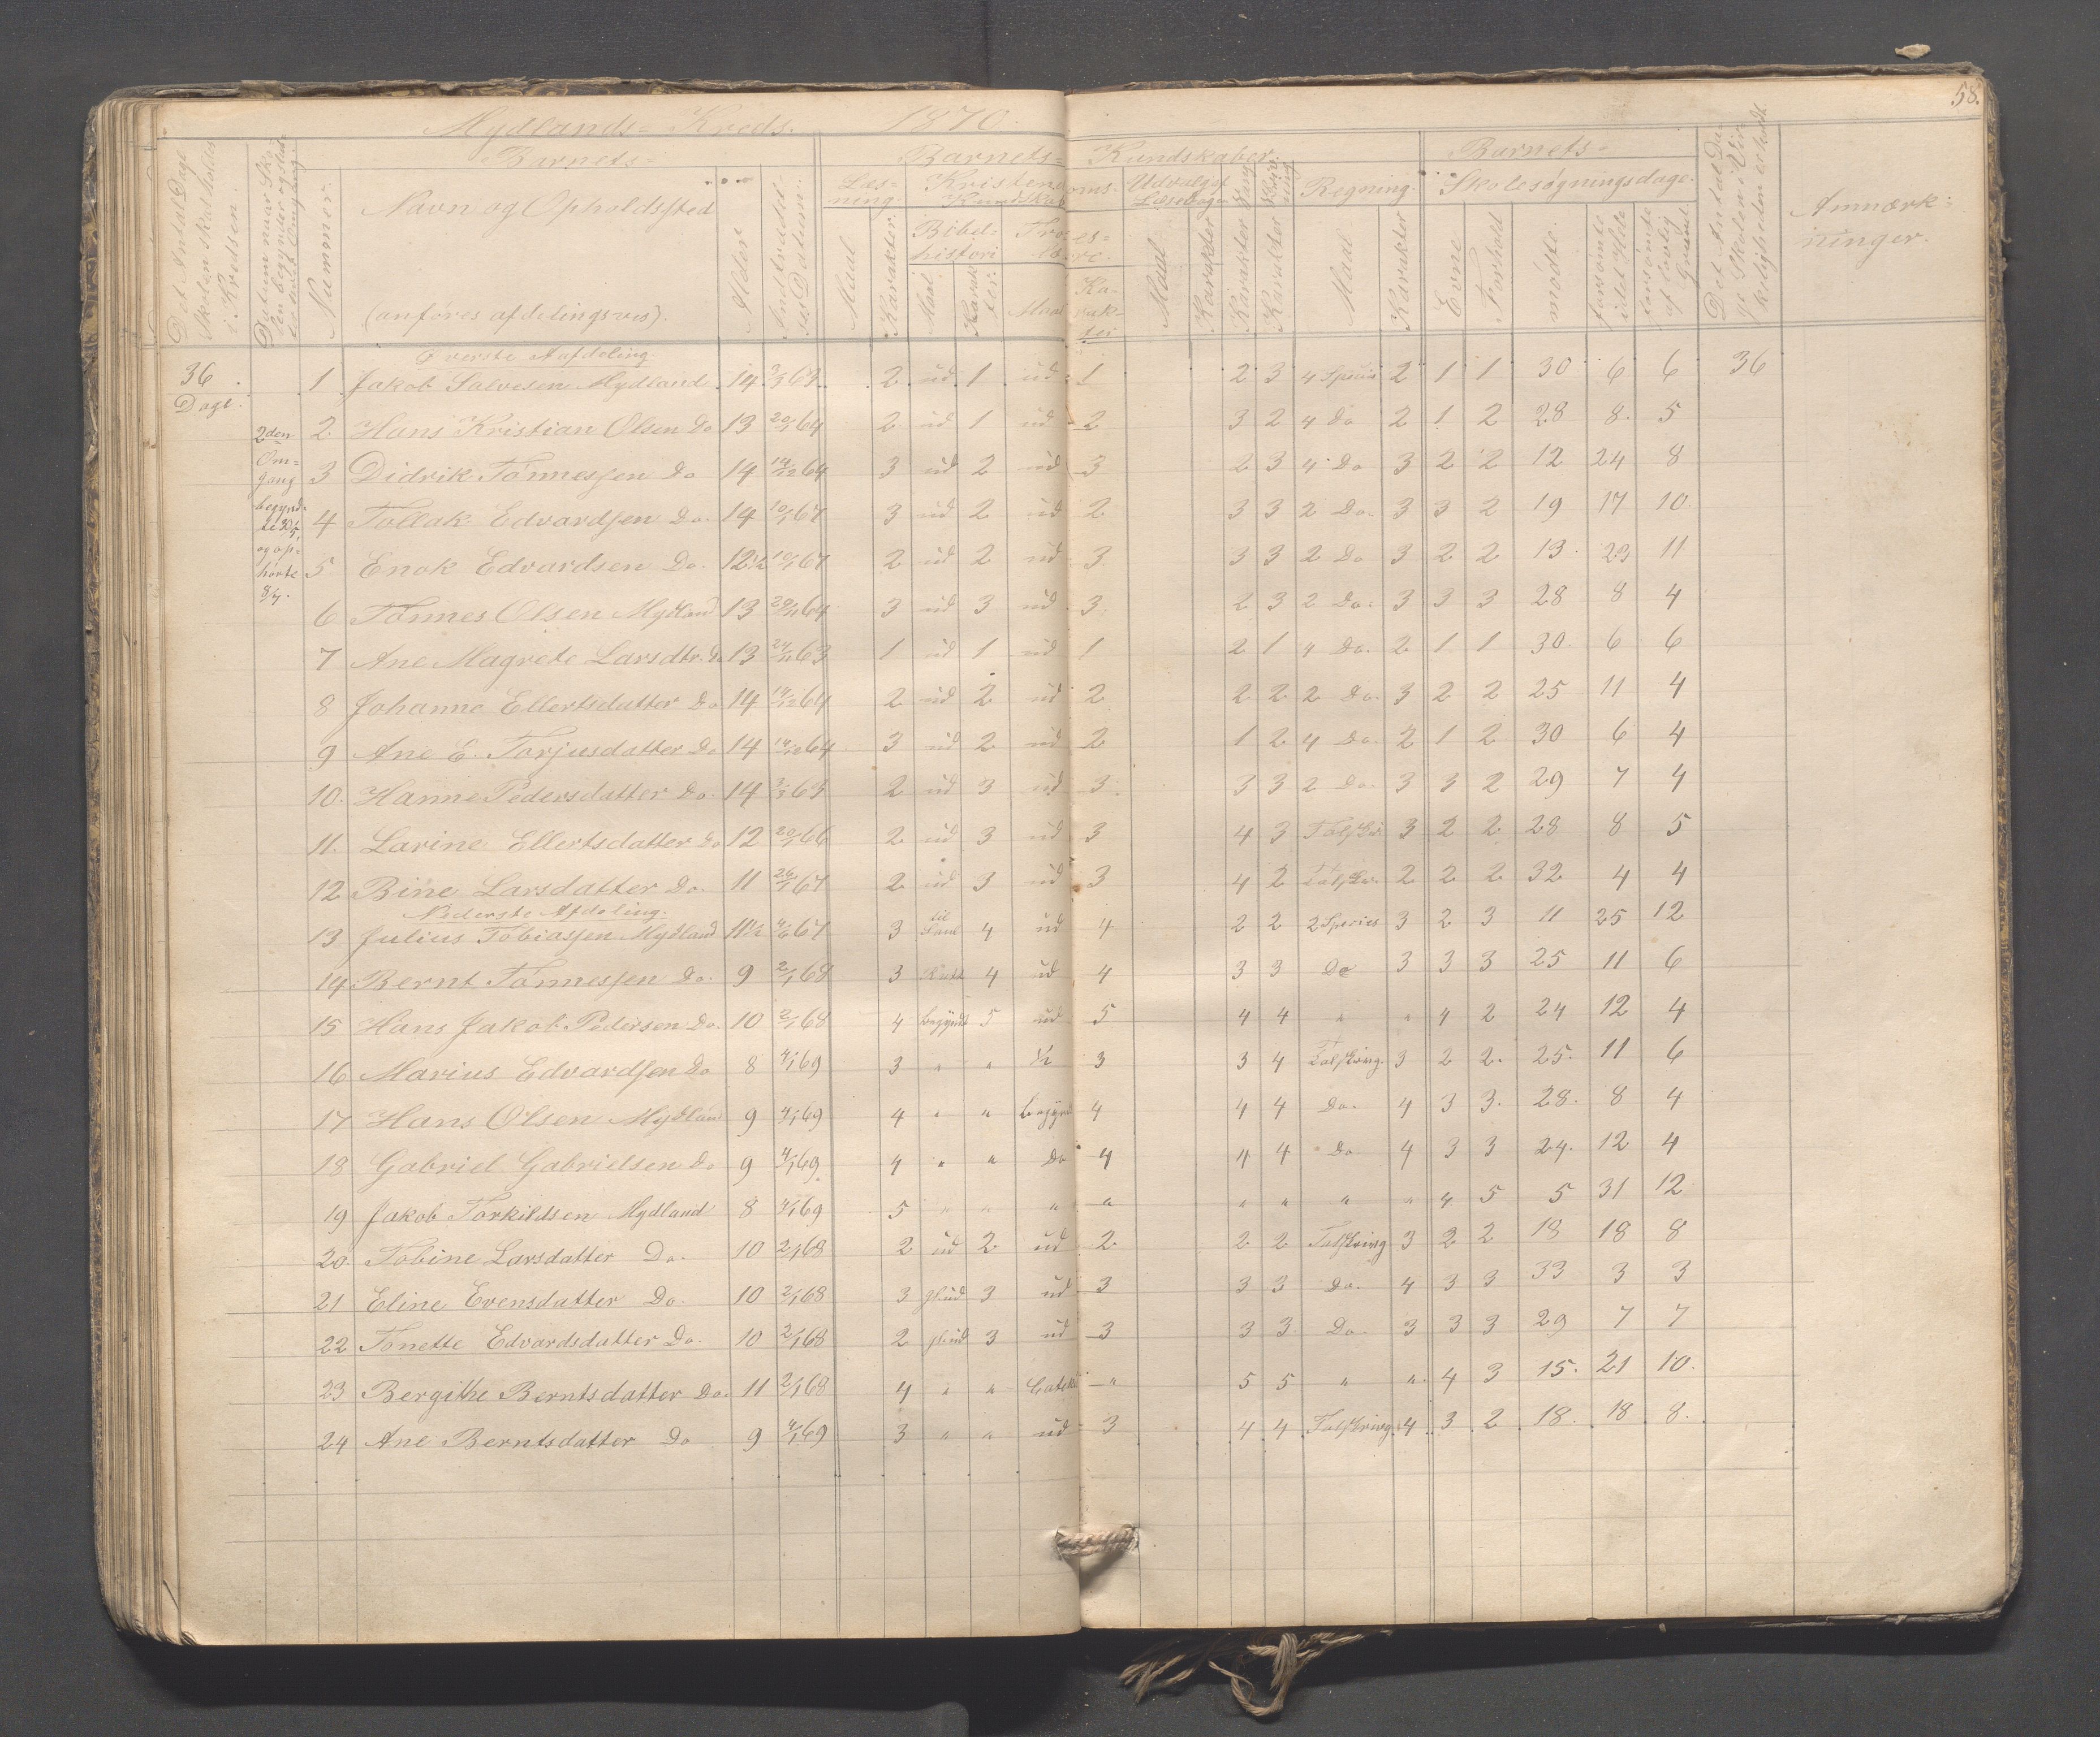 58.
Mydlands= Kreds. 1870.
Det Antal Dage Skolen skal holdes i Kredsen.
Datum naar Skolen begynder og slutter
Nummer.
Barnets=
Navn og Opholdssted
(anføres afdelingsvis).
Alder
Indtrædelses Datum.
Barnets= Kundskaber.
Læsning. Maal Karakter
Kristendoms= Kundskab
Bibelhistorie Maal Karakter.
Troeslære. Maal Karakter
Udvalg af Læsebogen Maal Karakter
Sang Karakter
Skrivning Karakter
Regning. Maal Karakter
Barnets=
Evne Forhold
Skolesøgningsdage.
mødte. forsømte i det Hele forsømte af lovlig Grund.
Det Antal Dage Skolen i Virkeligheden er holdt
Anmærkninger.
Øverste Aafdeling.
36 Dage.
2den Omgang begyndte 30/5, og ophørte 8/7.
1 Jakob Salvesen Mydland 14 3/3 63 2 üd 1 üd 1 2 3 4 Species 2 1 1 30 6 6 36
2 Hans Kristian Olsen Do 13 64 2 üd 1 üd 2 3 2 4 Do 2 1 2 28 8 5
3 Didrik Tønnessen Do 14 14/12 64 3 üd 2 üd 3 2 3 4 Do 3 2 2 12 24 8
4 Tollak Edvardsen Do. 14 10/1 67 3 üd 2 üd 2 3 3 2 Do. 3 3 2 19 17 10
5 Enok Edvardsen Do. 12½ 10/1 67 2 üd 2 üd 3 3 3 2 Do 3 2 2 13 23 11
6 Tønnes Olsen Mydland 13 64 3 üd 3 üd 3 2 3 2 Do. 3 3 3 28 8 4
7 Ane Magrete Larsdtr. Do 13 63 1 üd 1 üd 1 2 1 4 Do. 2 1 1 30 6 6
8 Johanne Ellertsdatter Do 14 14/12 64 2 üd 2 üd 2 2 2 2 Do. 3 2 2 25 11 4
9 Ane E. Torjusdatter Do 14 14/12 64 3 üd 2 üd 2 1 2 4 Do. 2 1 2 30 6 4
10. Hanne Pedersdatter Do. 14 3/3 63 2 üd 3 üd 3 3 3 2 Do. 3 3 2 29 7 4
11. Larine Ellertsdatter Do 12 66 2 üd 3 üd 3 4 3 3 2 2 28 8 5
12 Bine Larsdatter Do. 11 67 2 üd 3 üd 3 4 2 2 2 2 32 4 4
Nederste Afdeling.
13 Julius Tobiassen Mydland 11½ 67 3 til 4 üd 4 2 2 2 Species 3 2 3 11 25 12
14 Bernt Tønnessen Do. 9 2/1 68 3 4 üd 4 3 3 Do 3 3 3 25 11 6
15 Hans Jakob Pedersen Do. 10 2/1 68 4 begyndt 5 üd 5 4 4 " " 4 2 24 12 4
16 Marius Edvardsen Do 8 4/1 69 3 " " ½ 3 3 4 Talskrivng. 3 2 2. 25. 11 6
17 Hans Olsen Mydland 9 4/1 69 4 " " begyndt 4 4 4 Do. 4 3 3. 28. 8 4
18 Gabriel Gabrielsen Do 9 4/1 69. 4 " " Do 4 4 4 Do 4 3 3 24. 12 4
19 Jakob Torkildsen Mydland 8 4/1 69 5 " " " " " " " " 4 5 5 31 12
20. Tobine Larsdatter Do. 10 2/1 68 2 üd 2 üd 2 2 2 Talskrivng 3 2 2 18 18 8
21 Eline Evensdatter Do. 10 2/1 68 3 3 üd 3 3 3 Do. 4 3 3 33 3 3
22 Tonette Edvardsdatter Do. 10 2/1 68 2 3 üd 3 3 3 Do. 3 3 3 29 7 7
23 Bergithe Berntsdatter Do. 11 2/1 68 4 " " " 5 5 " " 4 3 15. 21 10.
24 Ane Berntsdatter Do 9 4/1 69 3 " " üd 3 4 4 Talskrivng. 4 3 2 18. 18 8.